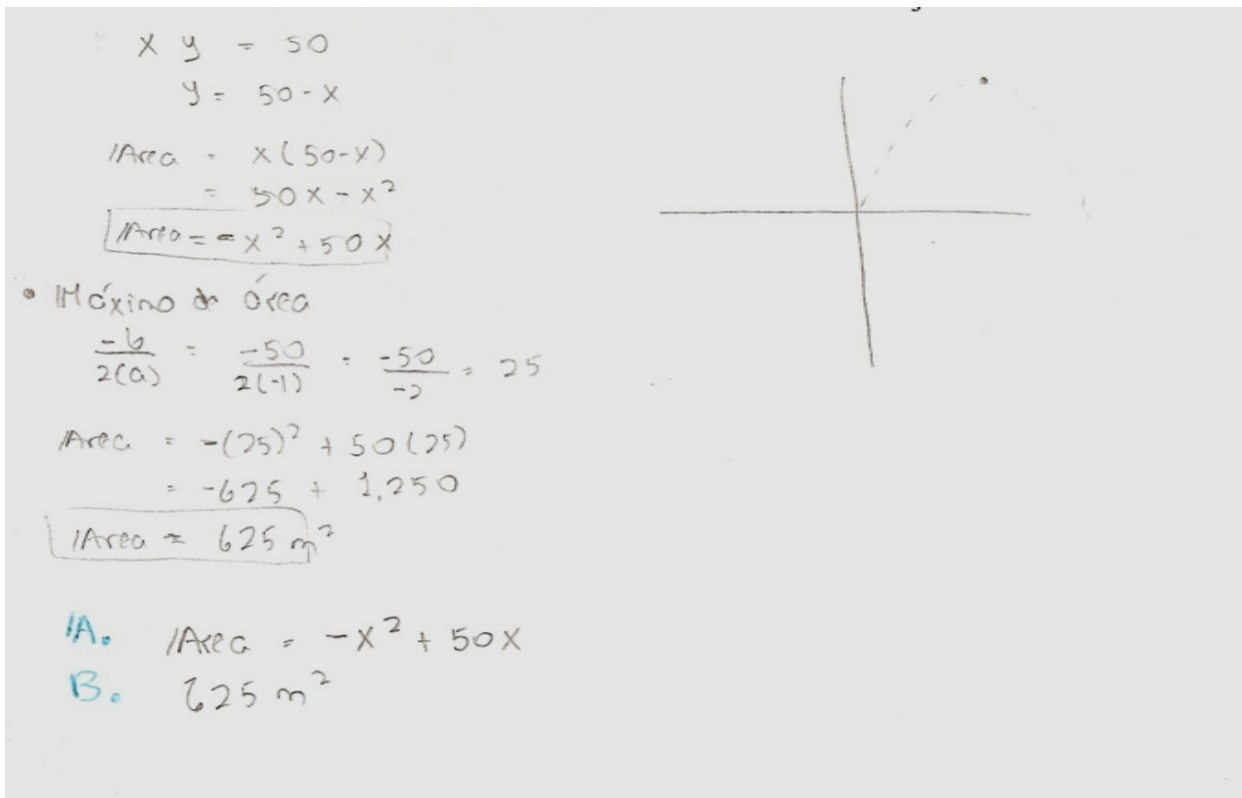 x y = 50
y = 50 - x
Area = x(50-x)
= 50x - x²
Area = -x² + 50x
• Máximo de área
-b/2(a) = -50/2(-1) = -50/-2 = 25
Area = -(25)² + 50(25)
= -625 + 1,250
Area = 625 m²
A. Area = -x² + 50x
B. 625 m²